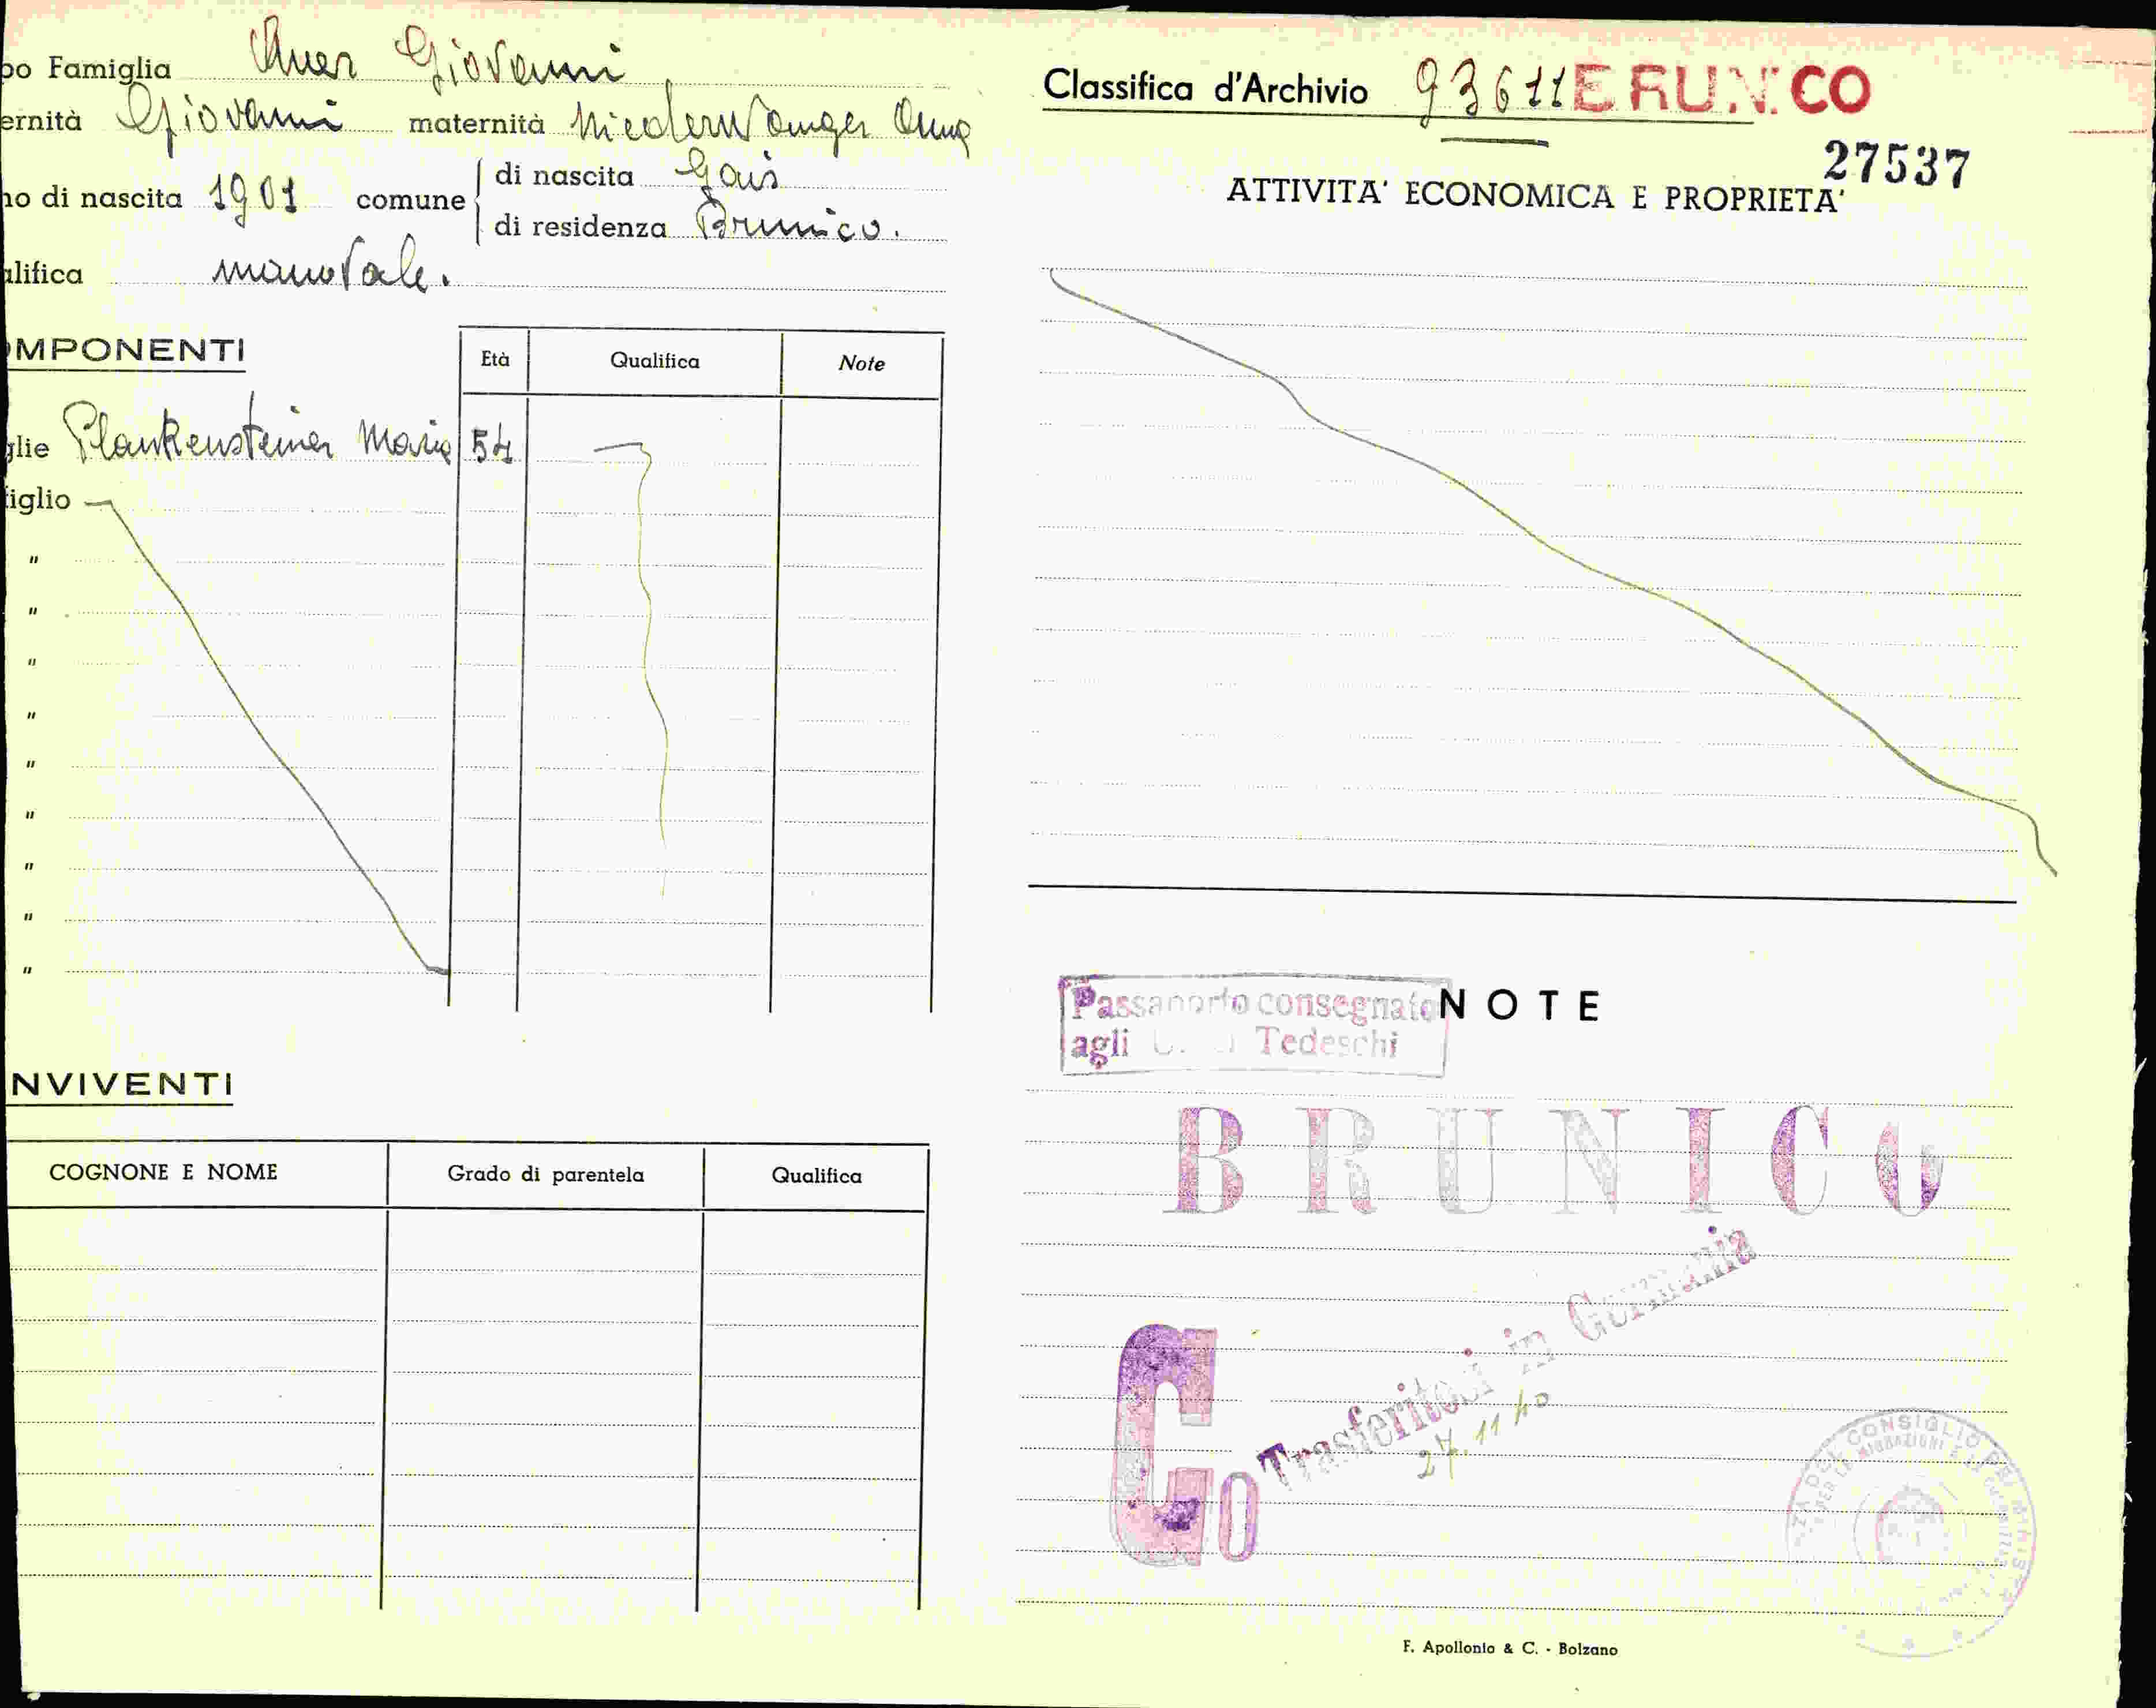 po Famiglia Auer Giovanni
ernità Giovanni maternità Niederwanger Anna
no di nascita 1901 comune di nascita Gais
di residenza Brunico.
alifica manovale.
OMPONENTI
Età Qualifica Note
glie Plankensteiner Maria 54
figlio
"
"
"
"
"
"
"
"
"
NVIVENTI
COGNONE E NOME Grado di parentela Qualifica
Classifica d'Archivio 93611 BRUNICO
27537
ATTIVITA' ECONOMICA E PROPRIETA'
Passaporto consegnato
agli Tedeschi
NOTE
BRUNICO
Go
Trasferitosi in Germania
27.11.40
CONSIGLIO
F. Apollonio & C. - Bolzano